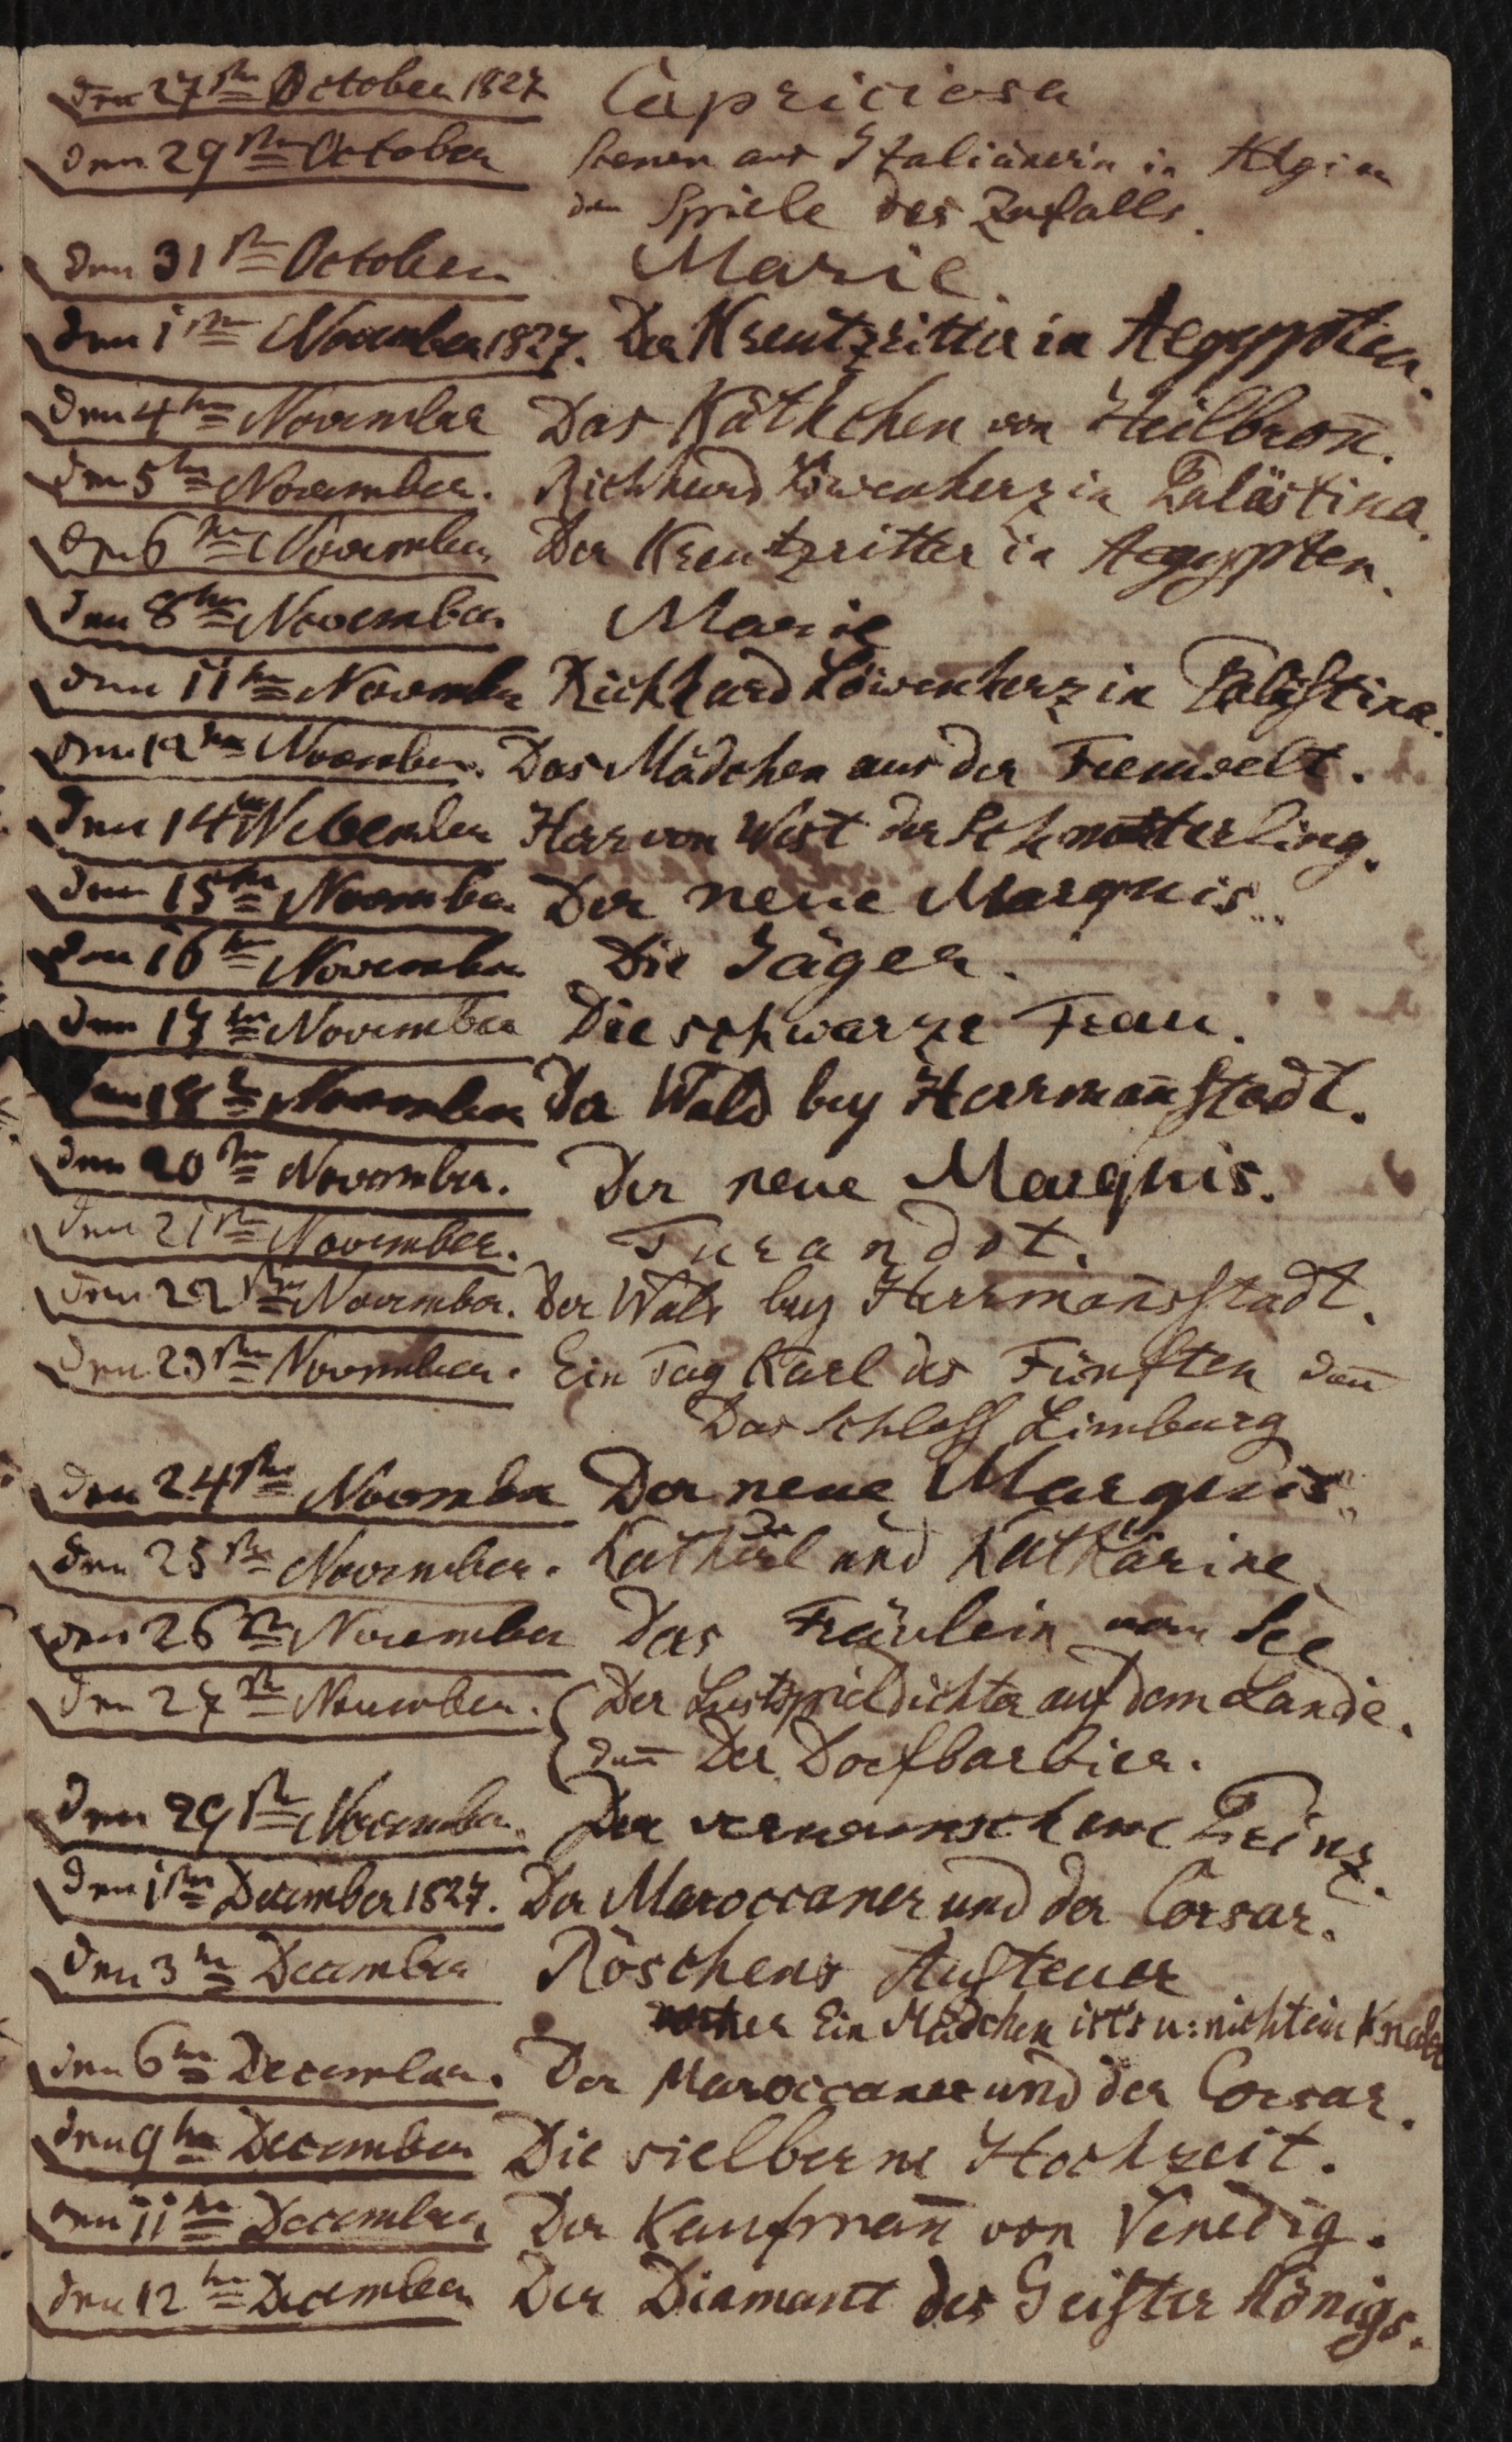 den 27ten October 1827 Capriciosa
den 29ten October Scenen aus Italiänerin in Algier
dan Spiele des Zufalls.
den 31ten October Marie.
den 1ten November 1827. Der Kreutzritter in Aegypten.
den 4ten November Das Käthchen von Heilbron̄.
den 5ten November. Richhard Löwenherz in Palästina.
den 6ten November Der Kreutzritter in Aegypten.
den 8ten November Marie
den 11ten November Richhard Löwenherz in Palästina.
den 12ten November. Das Mädchen aus der Feenwelt.
den 14ten November Herr von West der Schmetterling.
den 15ten November Der neue Marquis.
den 16ten November Die Jäger.
den 17ten November Die schwarze Frau.
den 18ten November Der Wald bey Herrman̄stadt.
den 20ten November. Der neue Marquis.
den 21ten November. Turandot.
den 22ten November. Der Wald bey Herrman̄sstadt.
den 23ten November. Ein Tag Karl des Fünften dan̄
Das Schloss Limburg
den 24ten November Der neue Marquis.
den 25ten November. Katherl und Katharine.
den 26ten November Das Fräulein vom See
den 27ten November. Der Lustspieldichter auf dem Lande.
dan̄ Der Dorfbarbier.
den 29ten November. Der verwunschene Prinz.
den 1ten December 1827. Der Maroccaner und der Corsar.
den 3ten December Röschens Austeuer
vorher Ein Mädchen ist's u: nicht ein Knabe
den 6ten December. Der Maroccaner und der Corsar.
den 9ten December Die sielberne Hochzeit.
den 11ten December Der Kaufman̄ von Venedig.
den 12ten December Der Diamant des Geister Königs.